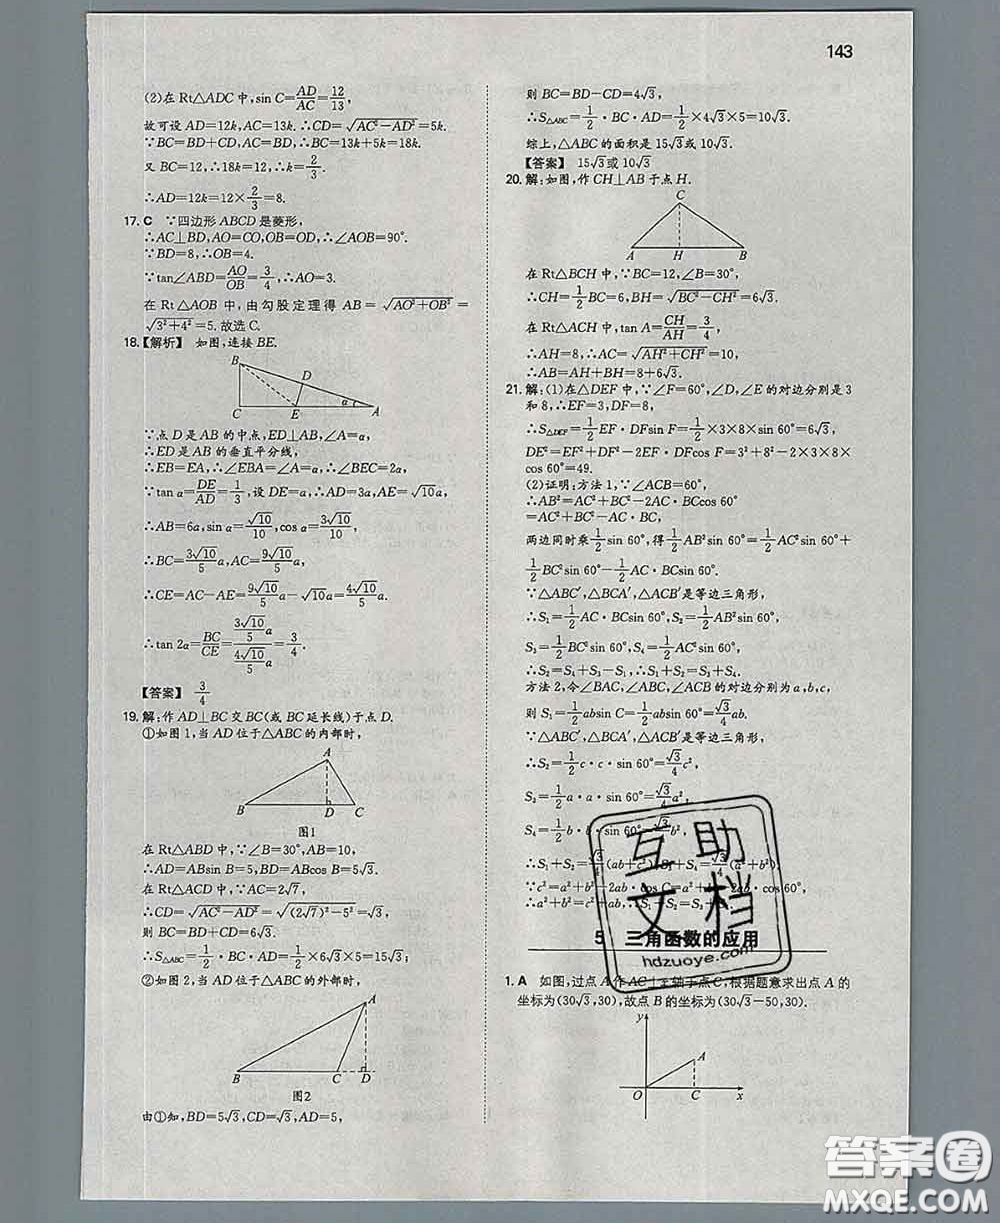 143
(2)在 Rt△ADC 中,sin C=AD/AC=12/13,
故可设 AD=12k,AC=13k.∴CD=√(AC²−AD²)=5k.
∵BC=BD+CD,AC=BD,∴BC=13k+5k=18k.
又 BC=12,∴18k=12,∴k=2/3.
∴AD=12k=12×2/3=8.
17. C ∵四边形 ABCD 是菱形,
∴AC⊥BD,AO=CO,OB=OD,∴∠AOB=90°.
∵BD=8,∴OB=4.
∵tan∠ABD=AO/OB=3/4,∴AO=3.
在 Rt△AOB 中,由勾股定理得 AB=√(AO²+OB²)=
√(3²+4²)=5.故选 C.
18.【解析】 如图,连接 BE.
B
D
α
C
E
A
∵点 D 是 AB 的中点,ED⊥AB,∠A=α,
∴ED 是 AB 的垂直平分线,
∴EB=EA,∴∠EBA=∠A=α,∴∠BEC=2α,
∵tan α=DE/AD=1/3,设 DE=a,∴AD=3a,AE=√10a,
∴AB=6a,sin α=√10/10,cos α=3√10/10,
∴BC=3√10/5a,AC=9√10/5a,
∴CE=AC−AE=9√10/5a−√10a=4√10/5a,
∴tan 2α=BC/CE=(3√10/5a)/(4√10/5a)=3/4.
【答案】 3/4
19. 解:作 AD⊥BC 交 BC(或 BC 延长线)于点 D.
①如图 1,当 AD 位于△ABC 的内部时,
A
B
D
C
图1
在 Rt△ABD 中,∵∠B=30°,AB=10,
∴AD=ABsin B=5,BD=ABcos B=5√3.
在 Rt△ACD 中,∵AC=2√7,
∴CD=√(AC²−AD²)=√((2√7)²−5²)=√3,
则 BC=BD+CD=6√3.
∴S△ABC=1/2·BC·AD=1/2×6√3×5=15√3;
②如图 2,当 AD 位于△ABC 的外部时,
A
B
C
D
图2
由①知,BD=5√3,CD=√3,AD=5,
则 BC=BD−CD=4√3,
∴S△ABC=1/2·BC·AD=1/2×4√3×5=10√3.
综上,△ABC 的面积是 15√3或 10√3.
【答案】 15√3或 10√3
20. 解:如图,作 CH⊥AB 于点 H.
C
A
H
B
在 Rt△BCH 中,∵BC=12,∠B=30°,
∴CH=1/2BC=6,BH=√(BC²−CH²)=6√3.
在 Rt△ACH 中,tan A=CH/AH=3/4,
∴AH=8,∴AC=√(AH²+CH²)=10,
∴AB=AH+BH=8+6√3.
21. 解:(1)在△DEF 中,∵∠F=60°,∠D,∠E 的对边分别是 3
和 8,∴EF=3,DF=8,
∴S△DEF=1/2EF·DFsin F=1/2×3×8×sin 60°=6√3,
DE²=EF²+DF²−2EF·DFcos F=3²+8²−2×3×8×
cos 60°=49.
(2)证明:方法 1,∵∠ACB=60°,
∴AB²=AC²+BC²−2AC·BCcos 60°
=AC²+BC²−AC·BC,
两边同时乘1/2sin 60°,得1/2AB²sin 60°=1/2AC²sin 60°+
1/2BC²sin 60°−1/2AC·BCsin 60°,
∵△ABC′,△BCA′,△ACB′是等边三角形,
∴S₁=1/2AC·BCsin 60°,S₂=1/2AB²sin 60°,
S₃=1/2BC²sin 60°,S₄=1/2AC²sin 60°,
∴S₂=S₄+S₃−S₁,∴S₁+S₂=S₃+S₄.
方法 2,令∠BAC,∠ABC,∠ACB 的对边分别为 a,b,c,
则 S₁=1/2absin C=1/2absin 60°=√3/4ab.
∵△ABC′,△BCA′,△ACB′是等边三角形,
∴S₂=1/2c·c·sin 60°=√3/4c²,
S₃=1/2a·a·sin 60°=√3/4a²,
S₄=1/2b·b·sin 60°=√3/4b²,
∴S₁+S₂=√3/4(ab+c²),S₃+S₄=√3/4(a²+b²),
∵c²=a²+b²−2ab·cos C=a²+b²−
∴a²+b²=c²+ab,∴S₁+S₂=S₃+S₄.
5 三角函数的应用
1. A 如图,过点 A 作 AC⊥x 轴于点 C,根据题意求出点 A 的
坐标为(30√3,30),故点 B 的坐标为(30√3−50,30).
y
A
O
C
x
互助
文档
hdzuoye.com
答案圈
MXQE.COM